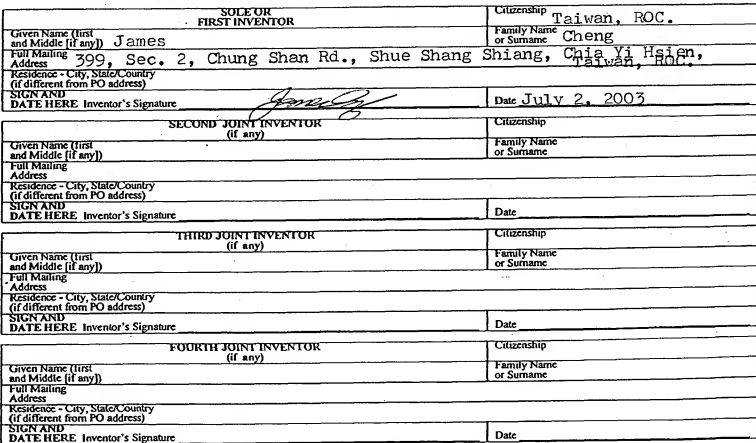 SOLE OR Citizenship Taiwan, ROC.
FIRST INVENTOR
Given Name (first Family Name
and Middle [if any]) James or Surname Cheng
Full Mailing
Address 399, Sec. 2, Chung Shan Rd., Shue Shang Shiang, Chia Yi Hsien,
Taiwan, ROC.
Residence - City, State/Country
(if different from PO address)
SIGN AND
DATE HERE Inventor's Signature Date July 2, 2003
SECOND JOINT INVENTOR Citizenship
(if any)
Given Name (first Family Name
and Middle [if any]) or Surname
Full Mailing
Address
Residence - City, State/Country
(if different from PO address)
SIGN AND
DATE HERE Inventor's Signature Date
THIRD JOINT INVENTOR Citizenship
(if any)
Given Name (first Family Name
and Middle [if any]) or Surname
Full Mailing
Address
Residence - City, State/Country
(if different from PO address)
SIGN AND
DATE HERE Inventor's Signature Date
FOURTH JOINT INVENTOR Citizenship
(if any)
Given Name (first Family Name
and Middle [if any]) or Surname
Full Mailing
Address
Residence - City, State/Country
(if different from PO address)
SIGN AND
DATE HERE Inventor's Signature Date